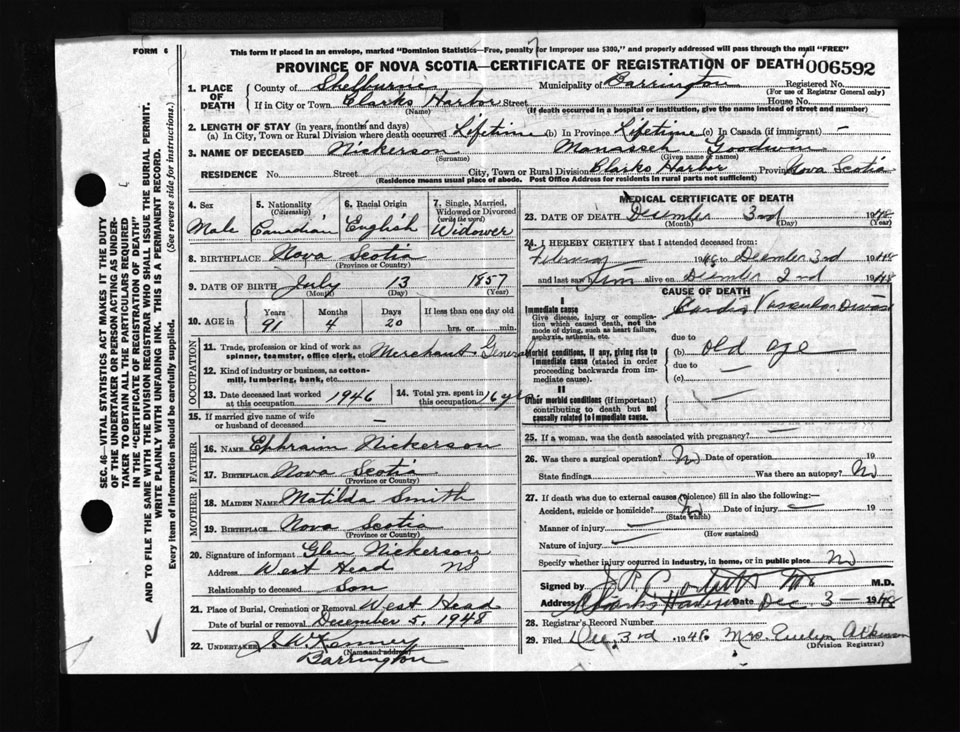 FORM 6
This form if placed in an envelope, marked "Dominion Statistics—Free, penalty for improper use $300," and properly addressed will pass through the mail "FREE"
PROVINCE OF NOVA SCOTIA—CERTIFICATE OF REGISTRATION OF DEATH 006592
1. PLACE OF DEATH County of Shelburne Municipality of Barrington Registered No.
(For use of Registrar General only)
If in City or Town Clarks Harbor Street House No.
(Name) (If death occurred in a hospital or institution, give the name instead of street and number)
2. LENGTH OF STAY (in years, months and days)
(a) In City, Town or Rural Division where death occurred Lifetime (b) In Province Lifetime (c) In Canada (if immigrant) —
3. NAME OF DECEASED Nickerson Manasseh Goodwin
(Surname) (Given name or names)
RESIDENCE No. Street City, Town or Rural Division Clarks Harbor Province Nova Scotia
(Residence means usual place of abode. Post Office Address for residents in rural parts not sufficient)
4. Sex Male
5. Nationality (Citizenship) Canadian
6. Racial Origin English
7. Single, Married, Widowed or Divorced (write the word) Widower
8. BIRTHPLACE Nova Scotia
(Province or Country)
9. DATE OF BIRTH July 13 1857
(Month) (Day) (Year)
10. AGE in Years Months Days If less than one day old
91 4 20 hrs. or min.
OCCUPATION
11. Trade, profession or kind of work as spinner, teamster, office clerk, etc. Merchant General
12. Kind of industry or business, as cotton-mill, lumbering, bank, etc.
13. Date deceased last worked at this occupation 1946
14. Total yrs. spent in this occupation 16 yrs
15. If married give name of wife or husband of deceased —
FATHER
16. NAME Ephraim Nickerson
17. BIRTHPLACE Nova Scotia
(Province or Country)
MOTHER
18. MAIDEN NAME Matilda Smith
19. BIRTHPLACE Nova Scotia
(Province or Country)
20. Signature of informant Glen Nickerson
Address West Head NS
Relationship to deceased Son
21. Place of Burial, Cremation or Removal West Head
Date of burial or removal December 5, 1948
22. UNDERTAKER
(Name and address)
Barrington
MEDICAL CERTIFICATE OF DEATH
23. DATE OF DEATH December 3rd 1948
(Month) (Day) (Year)
24. I HEREBY CERTIFY that I attended deceased from:
February 1946 to December 3rd 1948
and last saw him alive on December 2nd 1948
CAUSE OF DEATH
I
Immediate cause
Give disease, injury or complication which caused death, not the mode of dying, such as heart failure, asphyxia, asthenia, etc.
Cardio Vascular Disease
due to
Morbid conditions, if any, giving rise to immediate cause (stated in order proceeding backwards from immediate cause).
(b) old age
due to —
(c)
II
Other morbid conditions (if important) contributing to death but not causally related to immediate cause. —
25. If a woman, was the death associated with pregnancy? —
26. Was there a surgical operation? No Date of operation 19
State findings Was there an autopsy? No
27. If death was due to external causes (violence) fill in also the following:—
Accident, suicide or homicide? No Date of injury — 19
(State which)
Manner of injury —
(How sustained)
Nature of injury —
Specify whether injury occurred in industry, in home, or in public place No
Signed by M.D.
Address Clarks Harbor Date Dec 3 — 1948
28. Registrar's Record Number
29. Filed Dec. 3rd 1948 Mrs. Evelyn Atkinson
(Division Registrar)
SEC. 46—VITAL STATISTICS ACT MAKES IT THE DUTY
OF THE UNDERTAKER OR PERSON ACTING AS UNDER-
TAKER TO OBTAIN ALL THE PARTICULARS REQUIRED
IN THE "CERTIFICATE OF REGISTRATION OF DEATH"
AND TO FILE THE SAME WITH THE DIVISION REGISTRAR WHO SHALL ISSUE THE BURIAL PERMIT.
WRITE PLAINLY WITH UNFADING INK. THIS IS A PERMANENT RECORD.
Every item of information should be carefully supplied. (See reverse side for instructions.)